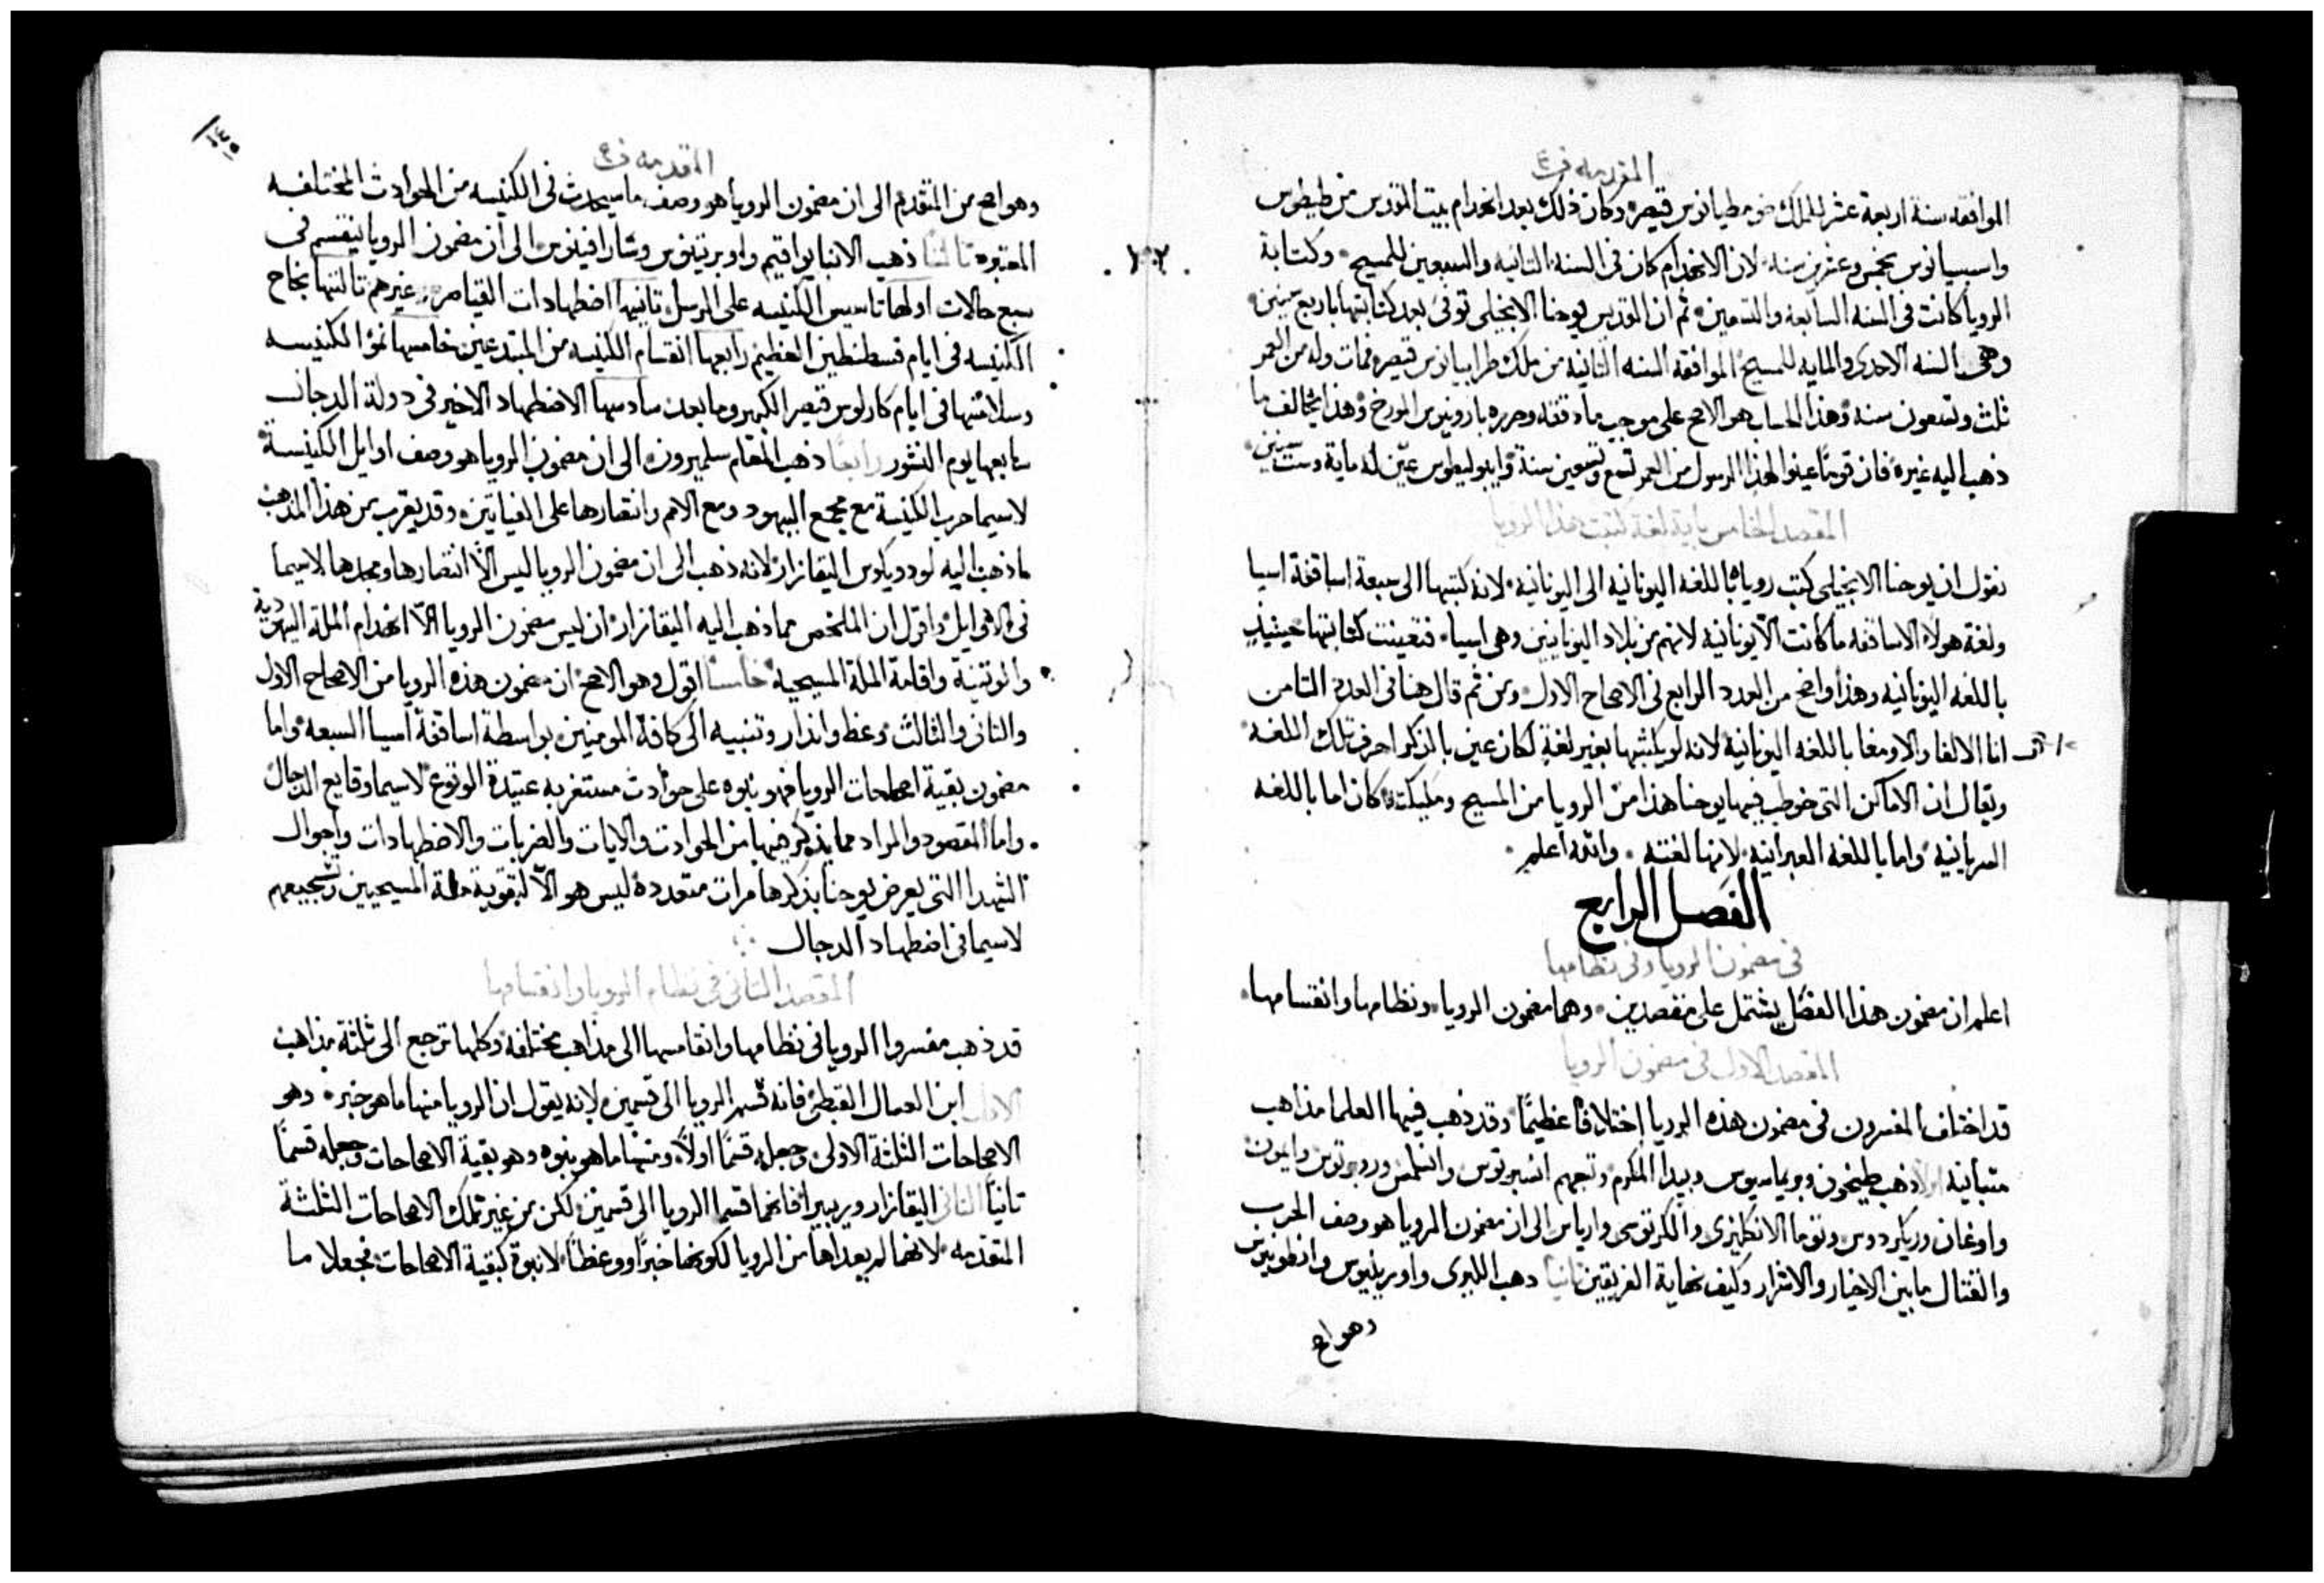 المقدمه ف ٤
الموافقه سنة اربعة عشر للملك ضوميطيانوس قيصر وكان ذلك بعد انهدام بيت المقدس من طيطوس
واسبسيانوس بخمس وعشرين سنه لان الانهدام كان في السنة الثانيه والسبعين للمسيح وكتابة
الرويا كانت في السنه السابعه والتسعين ثم ان القديس يوحنا الانجيلي توفى بعد كتابتها باربع سنين
وهي السنه الاحدى والمايه للمسيح الموافقه السنه الثانيه من ملك طرابيانوس قيصر فمات وله من العمر
ثلث وتسعون سنه وهذا الحساب هو الاصح على موجب ما دققه وحرره بارونيوس المورخ وهذا يخالف ما
ذهب اليه غيره فان قوما عينوا لهذا الرسول من العمر تسع وتسعين سنة وايبوليطوس عين له ماية وست سنين
المقصد الخامس باية لغة كتبت هذه الرويا
نقول ان يوحنا الانجيلي كتب روياه باللغه اليونانيه الى اليونانيه لانه كتبها الى سبعة اساقفة اسيا
ولغة هولاء الاساقفه ما كانت الا يونانيه لانهم من بلاد اليونانيين وهي اسيا فتعينت كتابتها حينيذ
باللغه اليونانيه وهذا واضح من العدد الرابع في الاصحاح الاول ومن ثم قال هنا في العدد الثامن
انا الالفا والاوميغا باللغه اليونانيه لانه لو كتبها بغير لغة لكان عين بالذكر احرف تلك اللغه
ويقال ان الاماكن التي خوطب فيها يوحنا هذا من الرويا من المسيح وملايكته كان اما باللغه
السريانيه واما باللغه العبرانيه لانها لغته والله اعلم
الفصل الرابع
في مضمون الرويا وفي نظامها
اعلم ان مضمون هذا الفصل يشتمل على مقصدين وهما مضمون الرويا ونظامها وانقسامها
المقصد الاول في مضمون الرويا
قد اختلف المفسرون في مضمون هذه الرويا اختلافا عظيما وقد ذهب فيها العلما مذاهب
متباينه اولا ذهب طيخون وبريماسيوس وبيدا المكرم وتبعهم انسبرتوس وانسلمس وروبرتوس وايمون
واوغان وريكردوس وتوما الانكليزي والكرتوسي وارياس الى ان مضمون الرويا هو وصف الحرب
والقتال ما بين الاخيار والاشرار وكيف نهاية الفريقين ثانيا ذهب الليري واوريليوس وانطونينوس
وهو اصح
المقدمه ف ٤
وهو اصح من المتقدم الى ان مضمون الرويا هو وصف ما سيحدث في الكنيسه من الحوادث المختلفه
المعتبره ثالثا ذهب الانبا يواقيم واوبرتينوس وشارافينوس الى ان مضمون الرويا ينقسم في
سبع حالات اولها تاسيس الكنيسه على الرسل ثانيها اضطهادات القياصره وغيرهم ثالثها نجاح
الكنيسه في ايام قسطنطين العظيم رابعها انقسام الكنيسه من المبتدعين خامسها نمو الكنيسه
وسلامتها في ايام كارلوس قيصر الكبير وما بعد سادسها الاضطهاد الاخير في دولة الدجال
سابعها يوم النشور رابعا ذهب المعلم سلميرون الى ان مضمون الرويا هو وصف اوايل الكنيسة
لاسيما حرب الكنيسة مع مجمع اليهود ومع الامم وانتصارها على الفيتين وقد يقرب من هذا المذهب
ما ذهب اليه لودويكوس اليقازار لانه ذهب الى ان مضمون الرويا ليس الا انتصارها ومجدها لاسيما
في الاوايل واقول ان الملخص مما ذهب اليه اليقازار ان ليس مضمون الرويا الا انهدام الملة اليهودية
والوثنية واقامة الملة المسيحيه خامسا اقول وهو الاصح ان مضمون هذه الرويا من الاصحاح الاول
والثاني والثالث وعظ وانذار وتنبيه الى كافة المومنين بواسطة اساقفة اسيا السبعه واما
مضمون بقية اصحاحات الرويا فهو نبوه على حوادث مستغربه عتيدة الوقوع لاسيما وقايع الدجال
واما المقصود والمراد مما يذكر فيها من الحوادث والايات والضربات والاضطهادات واحوال
الشهدا التي يعرض يوحنا بذكرها مرات متعددة ليس هو الا لتقوية ملة المسيحيين وتشجيعهم
لاسيما في اضطهاد الدجال
المقصد الثاني في نظام الرويا وانقسامها
قد ذهب مفسروا الرويا في نظامها وانقسامها الى مذاهب مختلفه وكلها ترجع الى ثلثة مذاهب
الاول ابن العسال القبطي فانه قسم الرويا الى قسمين لانه يقول ان الرويا منها ما هو خبر وهو
الاصحاحات الثلثة الاولى وجعله قسما اولا ومنها ما هو نبوه وهو بقية الاصحاحات وجعله قسما
ثانيا الثاني اليقازار وريبيرا فانهما قسما الرويا الى قسمين لكن من غير تلك الاصحاحات الثلثة
المتقدمه لانهما لم يعداها من الرويا لكونها خبرا ووعظا لا نبوة كبقية الاصحاحات فجعلا ما